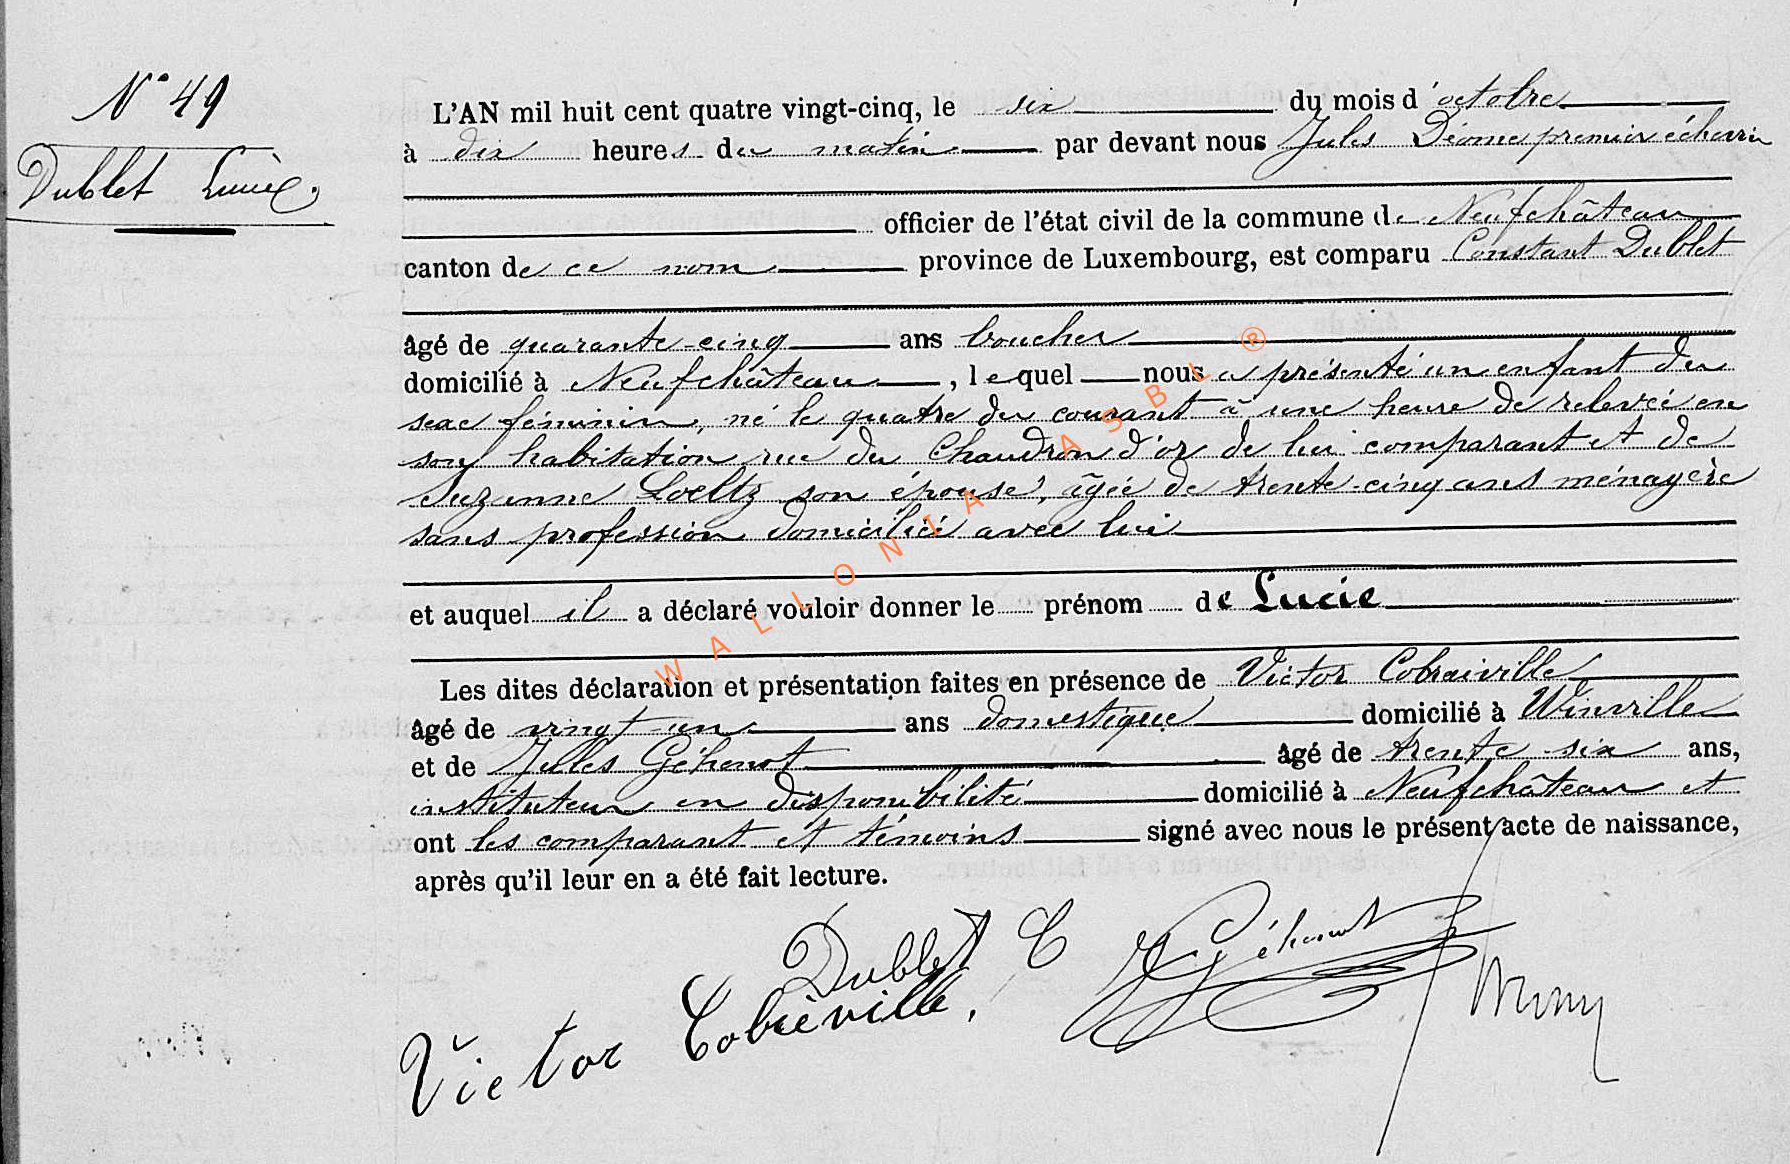 N° 49
Dublet Lucie.
L'AN mil huit cent quatre vingt-cinq, le six du mois d'octobre
à dix heures du matin par devant nous Jules Diome premier échevin
officier de l'état civil de la commune de Neufchâteau
canton de ce nom province de Luxembourg, est comparu Constant Dublet
âgé de quarante-cinq ans boucher
domicilié à Neufchâteau, lequel nous a présenté un enfant du
sexe féminin, né le quatre du courant à une heure de relevée en
son habitation rue du Chaudron d'or de lui comparant et de
Suzanne Loeltz son épouse, âgée de trente-cinq ans ménagère
sans profession domiciliée avec lui
et auquel il a déclaré vouloir donner le prénom de Lucie
Les dites déclaration et présentation faites en présence de Victor Cobraiville
âgé de vingt un ans domestique domicilié à Winville
et de Jules Géhenot âgé de trente six ans,
instituteur en disponibilité domicilié à Neufchâteau et
ont les comparant et témoins signé avec nous le présent acte de naissance,
après qu'il leur en a été fait lecture.
Dublet C
J Géhenot
Victor Cobréville.
WALLONIA ASBL ®